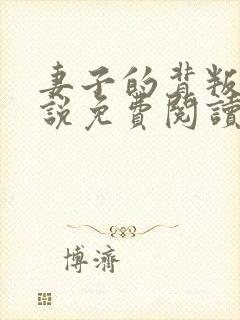 妻子的背叛
說免費閱讀
博濟